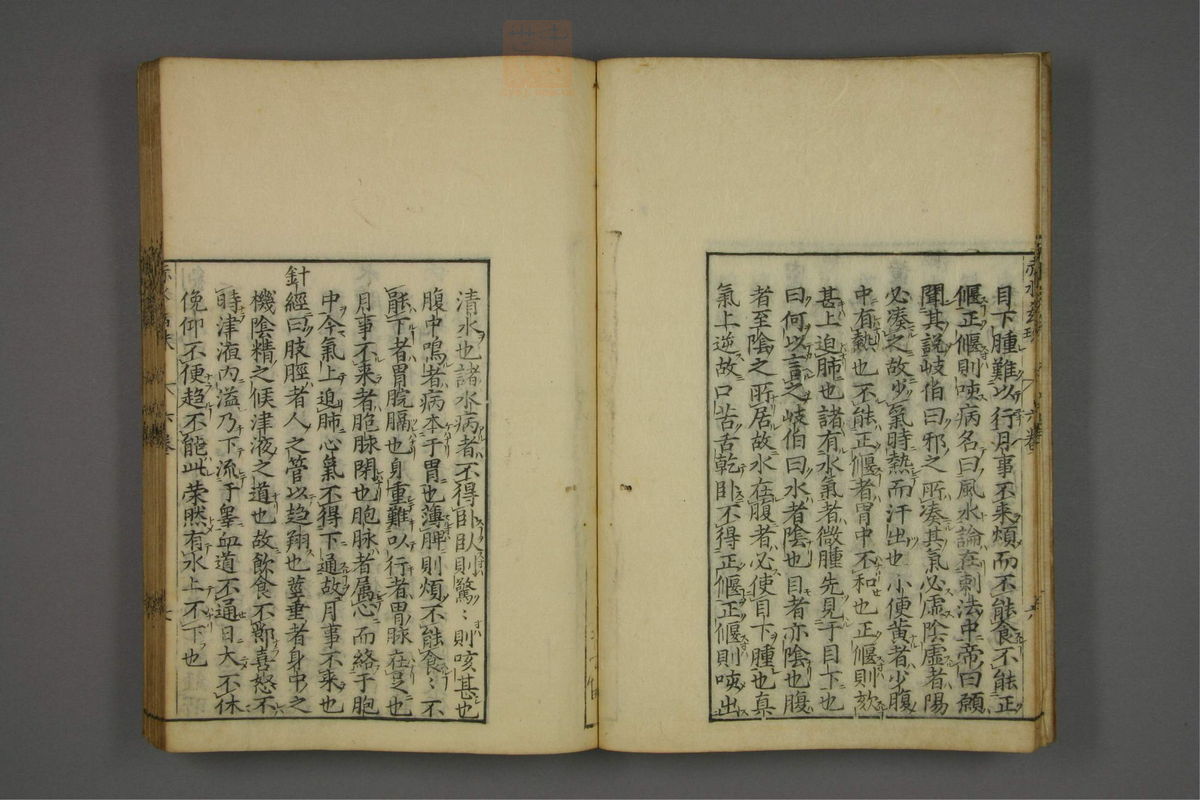 目下腫難以行月事不来煩而不能食不能正
偃正偃則咳病名曰風水論在刺法中帝曰願
聞其説岐伯曰邪之所湊其氣必虚陰虚者陽
必湊之故少氣時熱而汗出也小便黄者少腹
中有熱也不能正偃者胃中不和也正偃則欬
甚上迫肺也諸有水氣者微腫先見于目下也
曰何以言之岐伯曰水者陰也目者亦陰也腹
者至陰之所居故水在腹者必使目下腫也真
氣上逆故口苦舌乾卧不得正偃正偃則咳出
清水也諸水病者不得卧卧則驚〻則咳甚也
腹中鳴者病本于胃也薄脾則煩不能食〻不
下者胃脘膈也身重難以行者胃脉在足也
月事不来者胞脉閉也胞脉者属心而絡于胞
中今氣上迫肺心氣不得下通故月事不来也
針經曰肢脛者人之管以趋翔也莖垂者身中之
機陰精之候津液之道也故飲食不節喜怒不
時津液内溢乃下流于睾血道不通日大不休
俛仰不便趋不能此荣然有水上不下也
六卷